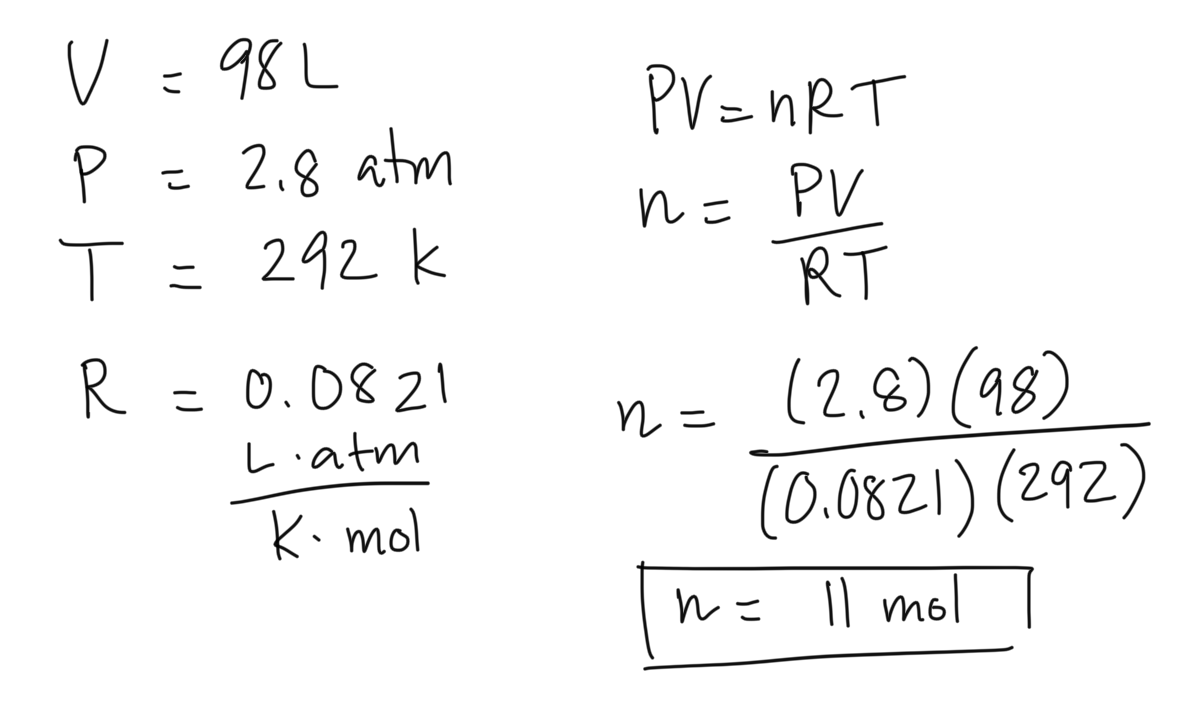 V = 98 L
P = 2.8 atm
T = 292 k
R = 0.0821
L · atm
K · mol
PV = nRT
n = PV
RT
n = (2.8)(98)
(0.0821)(292)
n = 11 mol